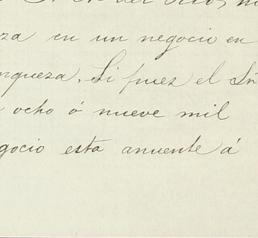 za en un negocio en
nqueza. Si pues el Sñ
ocho ó nueve mil
gocio esta anuente á